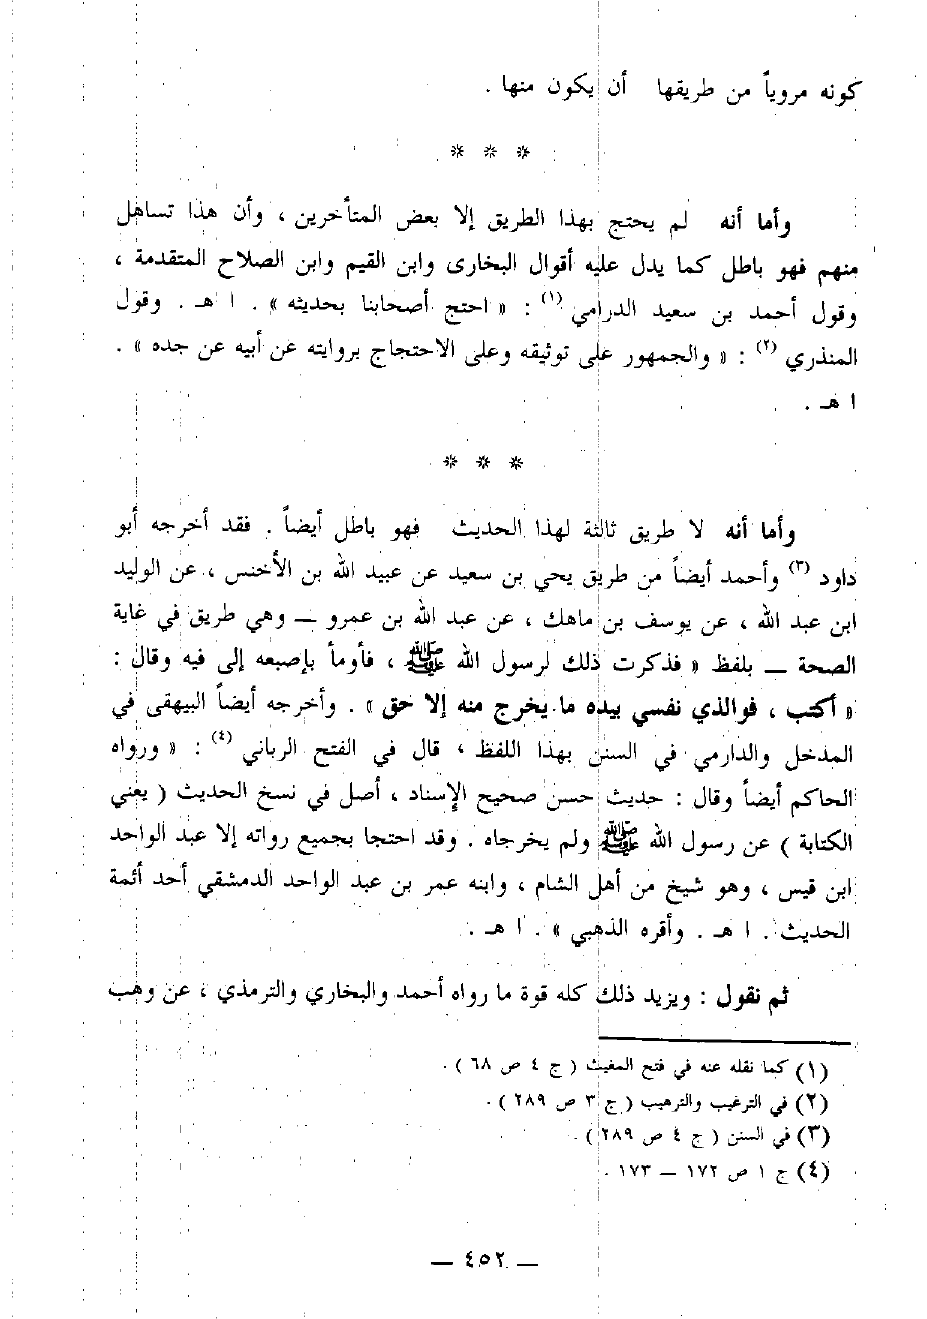 كونه مروياً من طريقها أن يكون منها .
* * *
وأما أنه لم يحتج بهذا الطريق إلا بعض المتأخرين ، وأن هذا تساهل
منهم فهو باطل كما يدل عليه أقوال البخارى وابن القيم وابن الصلاح المتقدمة ،
وقول أحمد بن سعيد الدرامي (١) : « احتج أصحابنا بحديثه » . ا هـ . وقول
المنذري (٢) : « والجمهور على توثيقه وعلى الاحتجاج بروايته عن أبيه عن جده » .
ا هـ .
* * *
وأما أنه لا طريق ثالثة لهذا الحديث فهو باطل أيضاً . فقد أخرجه أبو
داود (٣) وأحمد أيضاً من طريق يحي بن سعيد عن عبيد الله بن الأخنس ، عن الوليد
ابن عبد الله ، عن يوسف بن ماهك ، عن عبد الله بن عمرو — وهي طريق في غاية
الصحة — بلفظ « فذكرت ذلك لرسول الله ﷺ ، فأومأ بإصبعه إلى فيه وقال :
« أكتب ، فوالذي نفسي بيده ما يخرج منه إلا حق » . وأخرجه أيضاً البيهقى في
المدخل والدارمي في السنن بهذا اللفظ ، قال في الفتح الرباني (٤) : « ورواه
الحاكم أيضاً وقال : حديث حسن صحيح الإسناد ، أصل في نسخ الحديث ( يعني
الكتابة ) عن رسول الله ﷺ ولم يخرجاه . وقد احتجا بجميع رواته إلا عبد الواحد
ابن قيس ، وهو شيخ من أهل الشام ، وابنه عمر بن عبد الواحد الدمشقي أحد أئمة
الحديث . ا هـ . وأقره الذهبي » . ا هـ .
ثم نقول : ويزيد ذلك كله قوة ما رواه أحمد والبخاري والترمذي ، عن وهب
(١) كما نقله عنه في فتح المغيث ( ج ٤ ص ٦٨ ) .
(٢) في الترغيب والترهيب ( ج ٣ ص ٢٨٩ ) .
(٣) في السنن ( ج ٤ ص ٢٨٩ ) .
(٤) ج ١ ص ١٧٢ — ١٧٣ .
— ٤٥٢ —